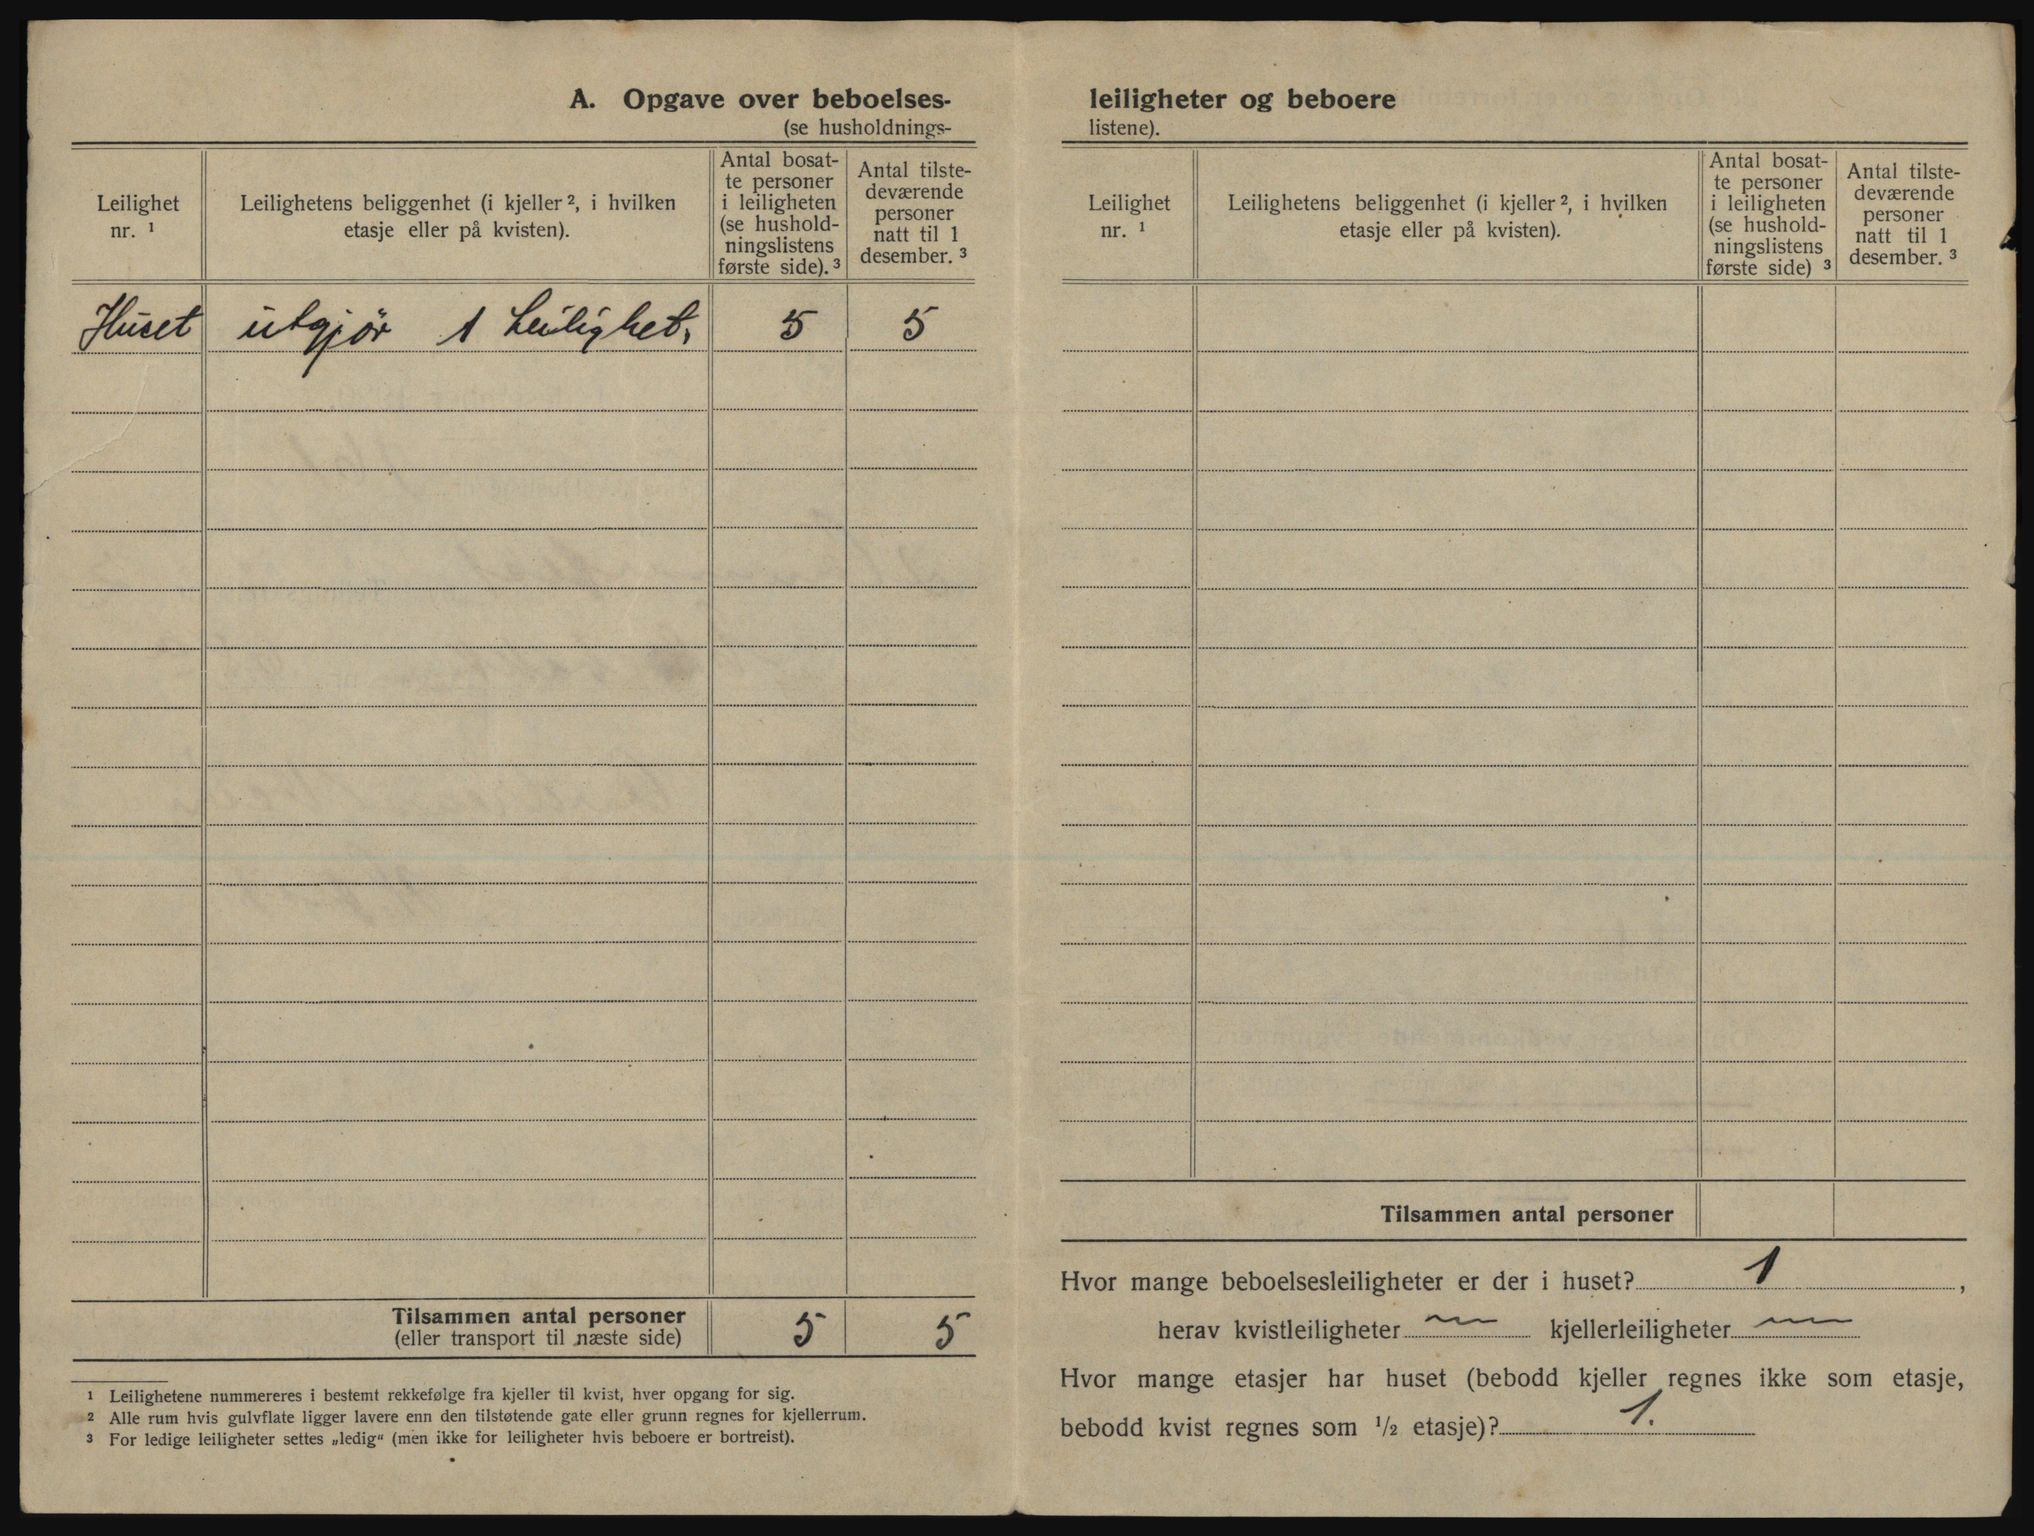 A. Opgave over beboelses-
(se husholdnings-
Leilighet
nr. ¹
Leilighetens beliggenhet (i kjeller ², i hvilken
etasje eller på kvisten).
Antal bosat-
te personer
i leiligheten
(se hushold-
ningslistens
første side). ³
Antal tilste-
deværende
personer
natt til 1
desember. ³
Huset utgjør 1 Leilighet, 5 5
Tilsammen antal personer 5 5
(eller transport til næste side)
¹ Leilighetene nummereres i bestemt rekkefølge fra kjeller til kvist, hver opgang for sig.
² Alle rum hvis gulvflate ligger lavere enn den tilstøtende gate eller grunn regnes for kjellerrum.
³ For ledige leiligheter settes „ledig“ (men ikke for leiligheter hvis beboere er bortreist).
leiligheter og beboere
listene).
Leilighet
nr. ¹
Leilighetens beliggenhet (i kjeller ², i hvilken
etasje eller på kvisten).
Antal bosat-
te personer
i leiligheten
(se hushold-
ningslistens
første side) ³
Antal tilste-
deværende
personer
natt til 1
desember. ³
Tilsammen antal personer
Hvor mange beboelsesleiligheter er der i huset? 1,
herav kvistleiligheter kjellerleiligheter
Hvor mange etasjer har huset (bebodd kjeller regnes ikke som etasje,
bebodd kvist regnes som ½ etasje)? 1.